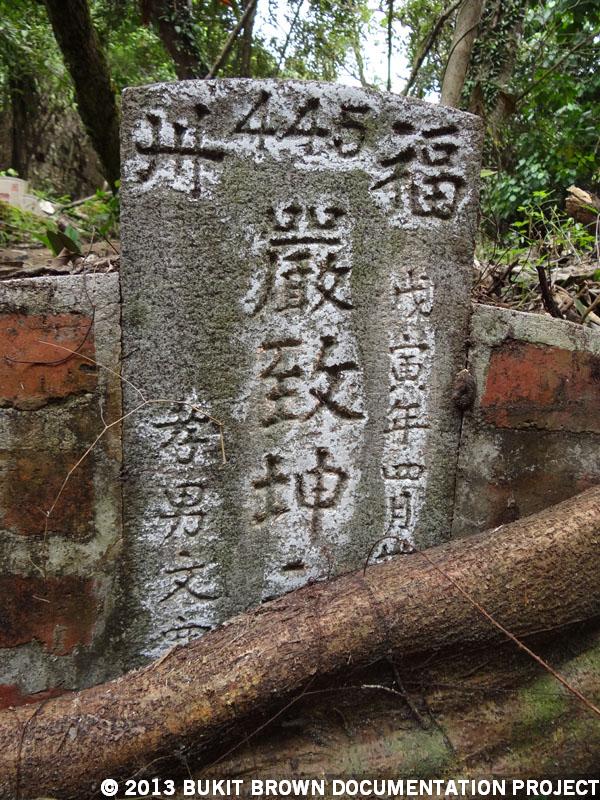 福 445 州
戊寅年四月
嚴致坤
孝男文
© 2013 BUKIT BROWN DOCUMENTATION PROJECT